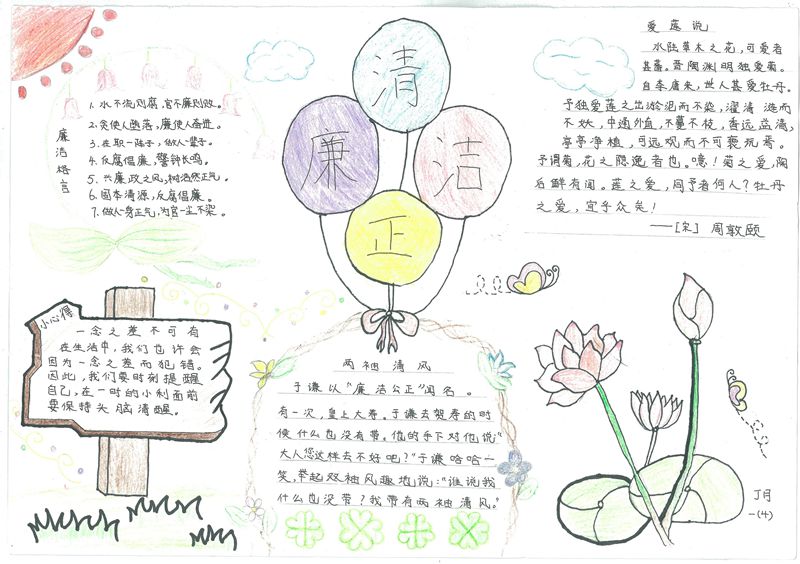 清
廉
洁
正
廉洁格言
1. 水不流则腐，官不廉则败。
2. 贪使人堕落，廉使人奋进。
3. 在职一阵子，做人一辈子。
4. 反腐倡廉，警钟长鸣。
5. 兴廉政之风，树浩然正气。
6. 固本清源，反腐倡廉。
7. 做人一身正气，为官一尘不染。
爱莲说
水陆草木之花，可爱者
甚蕃。晋陶渊明独爱菊。
自李唐来，世人甚爱牡丹。
予独爱莲之出淤泥而不染，濯清涟而
不妖，中通外直，不蔓不枝，香远益清，
亭亭净植，可远观而不可亵玩焉。
予谓菊，花之隐逸者也。噫！菊之爱，陶
后鲜有闻。莲之爱，同予者何人？牡丹
之爱，宜乎众矣！
——［宋］周敦颐
小心得
一念之差不可有
在生活中，我们也许会
因为一念之差而犯错。
因此，我们要时刻提醒
自己，在一时的小利面前
要保持头脑清醒。
两袖清风
于谦以“廉洁公正”闻名。
有一次，皇上大寿。于谦去贺寿的时
候什么也没有带。他的手下对他说“
大人您这样去不好吧？”于谦哈哈一
笑，举起双袖风趣地说：“谁说我
什么也没带？我带有两袖清风。”
一(4)